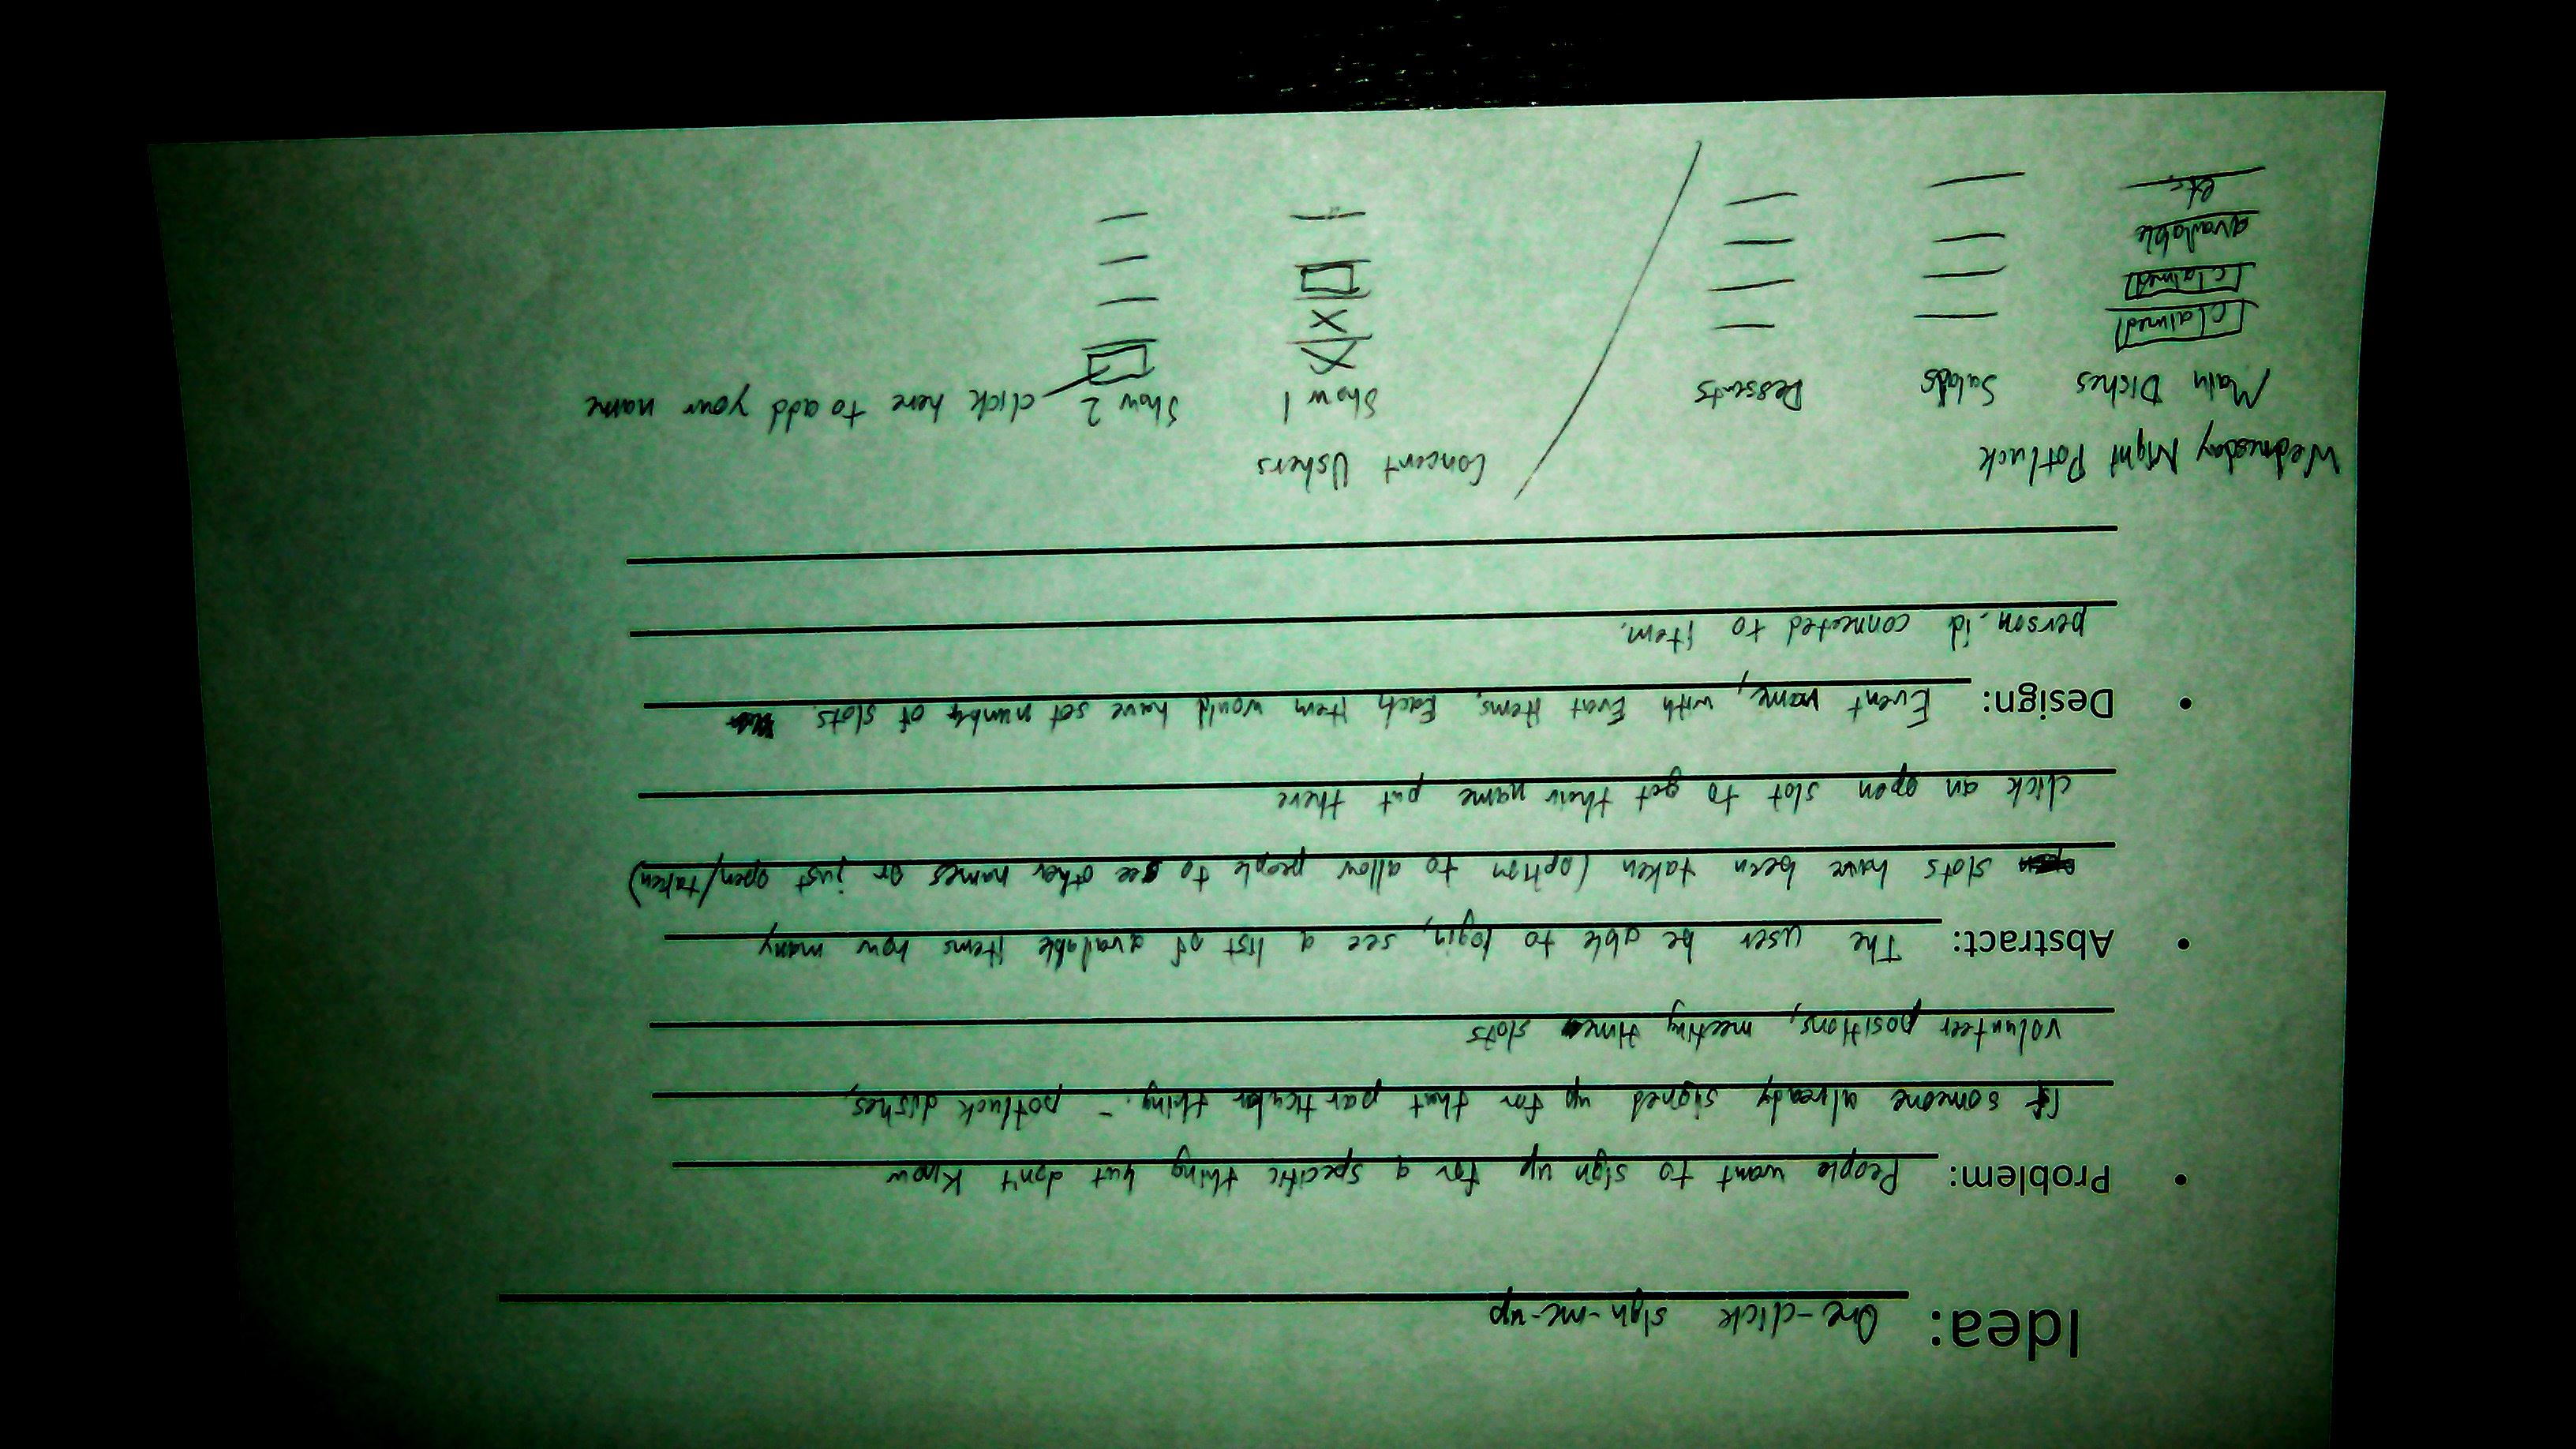 Idea: One-click sign-me-up
• Problem: People want to sign up for a specific thing but don't know
if someone already signed up for that particular thing. - potluck dishes,
volunteer positions, meeting time slots
• Abstract: The user be able to login, see a list of available items how many
slots have been taken (option to allow people to see other names or just open/taken)
click an open slot to get their name put there
• Design: Event name, with Event items. Each item would have set number of slots.
person_id connected to item.
Wednesday Night Potluck
Main Dishes Salads Desserts
claimed
claimed
available
etc.
Concert Ushers
Show 1 Show 2 click here to add your name
X
X